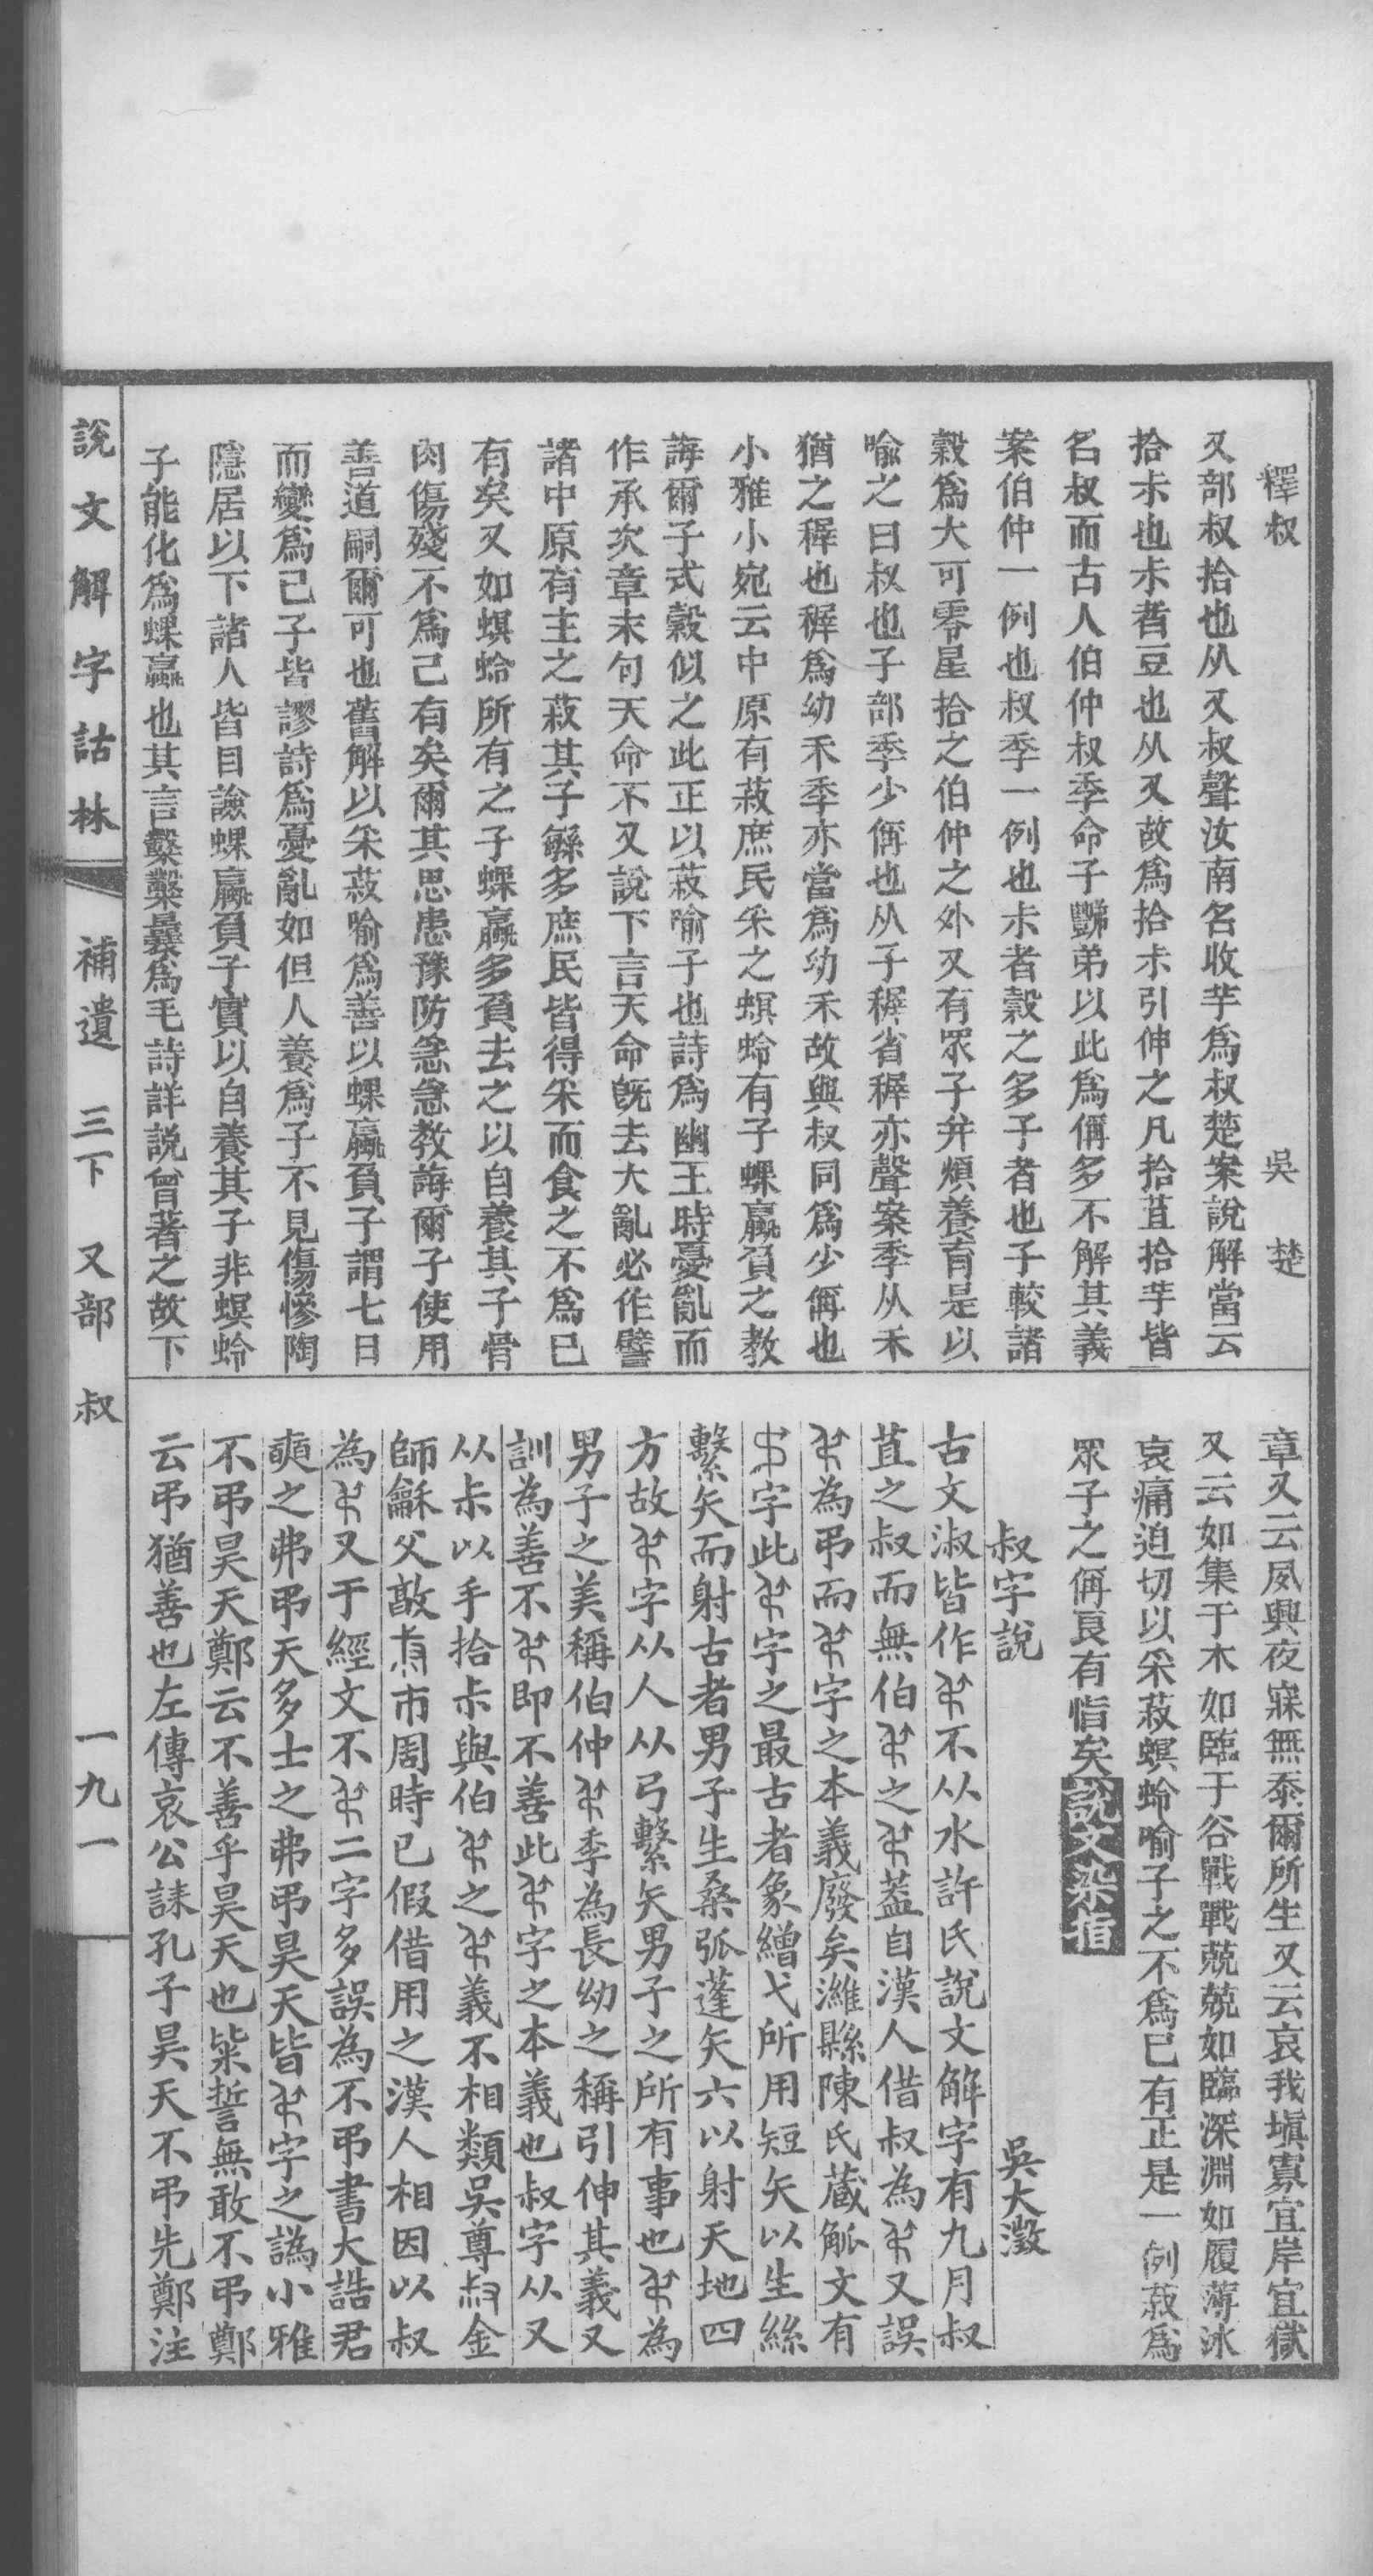 釋叔　吳楚
又部叔拾也从又叔聲汝南名收芋爲叔楚案說解當云
拾尗也尗者豆也从又故爲拾尗引伸之凡拾苴拾芋皆
名叔而古人伯仲叔季命子豑弟以此爲偁多不解其義
案伯仲一例也叔季一例也尗者穀之多子者也子較諸
穀爲大可零星拾之伯仲之外又有眾子幷煩養育是以
喩之曰叔也子部季少偁也从子稺省稺亦聲案季从禾
猶之稺也稺爲幼禾季亦當爲幼禾故與叔同爲少偁也
小雅小宛云中原有菽庶民采之螟蛉有子蜾蠃負之教
誨爾子式穀似之此正以菽喻子也詩爲幽王時憂亂而
作承次章末句天命不又說下言天命旣去大亂必作譬
諸中原有主之菽其子繇多庶民皆得采而食之不爲已
有矣又如螟蛉所有之子蜾蠃多負去之以自養其子骨
肉傷殘不爲己有矣爾其思患豫防急急教誨爾子使用
善道嗣爾可也舊解以采菽喻爲善以蜾蠃負子謂七日
而變爲己子皆謬詩爲憂亂如但人養爲子不見傷慘陶
隱居以下諸人皆目譣蜾蠃負子實以自養其子非螟蛉
子能化爲蜾蠃也其言鑿鑿曩爲毛詩詳説曾著之故下
章又云夙興夜寐無忝爾所生又云哀我塡寡宜岸宜獄
又云如集于木如臨于谷戰戰兢兢如臨深淵如履薄冰
哀痛迫切以采菽螟蛉喻子之不爲已有正是一例菽爲
眾子之偁良有恉矣說文染指
叔字說　吳大澂
古文淑皆作不从水許氏說文解字有九月叔
苴之叔而無伯之蓋自漢人借叔為又誤
為弔而字之本義廢矣濰縣陳氏藏觚文有
字此字之最古者象繒弋所用短矢以生絲
繫矢而射古者男子生桑弧蓬矢六以射天地四
方故字从人从弓繫矢男子之所有事也為
男子之美稱伯仲季為長幼之稱引伸其義又
訓為善不即不善此字之本義也叔字从又
从尗以手拾尗與伯之義不相類吳尊叔金
師龢父敦市周時已假借用之漢人相因以叔
為又于經文不二字多誤為不弔書大誥君
奭之弗弔天多士之弗弔昊天皆字之譌小雅
不弔昊天鄭云不善乎昊天也粊誓無敢不弔鄭
云弔猶善也左傳哀公誄孔子昊天不弔先鄭注
說文解字詁林　補遺　三下　又部　叔　一九一